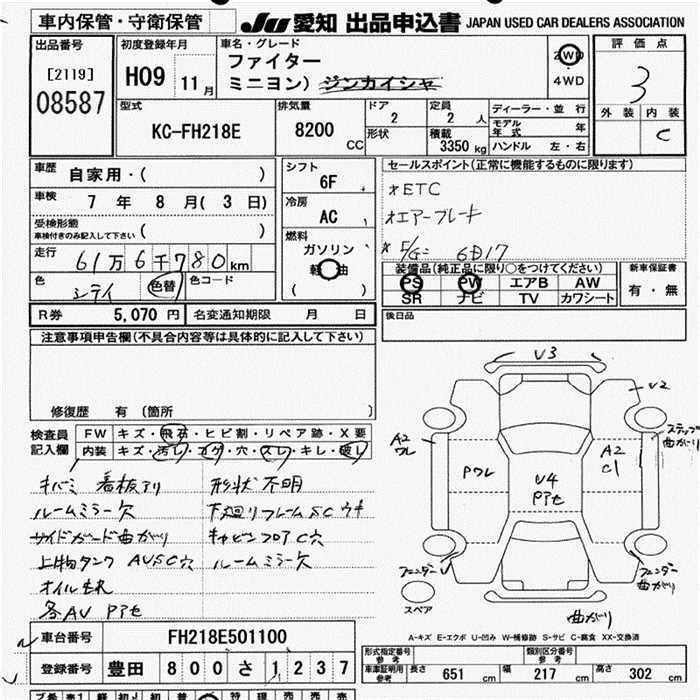 車内保管・守衛保管 JU 愛知 出品申込書 JAPAN USED CAR DEALERS ASSOCIATION
出品番号 初度登録年月 車名・グレード 評価点
[2119] H09 11月 ファイター 2WD 3
08587 ミニヨン) ジンカイシャ 4WD
外装 内装
C
型式 排気量 ドア 定員 ディーラー・並行
KC-FH218E 8200 CC 2 2 人 モデル年式 年
形状 積載 3350 kg ハンドル 左・右
車歴 自家用・( ) シフト セールスポイント(正常に機能するものに限ります)
6F
車検 7 年 8 月( 3 日) 冷房 *ETC
AC *エアーブレーキ
受検形態 車検付きのみ記入して下さい ( ) 燃料 * E/G= 6D17
走行 61万6千780km ガソリン 装備品(純正品に限り○をつけてください) 新車保証書
色 シテイ 色替 色コード 軽油 PS PW エアB AW 有・無
( ) SR ナビ TV カワシート
R券 5,070 円 名変通知期限 月 日 後日品
注意事項申告欄(不具合内容等は具体的に記入して下さい)
修復歴 有 (箇所 )
検査員 FW キズ・飛石・ヒビ割・リペア跡・X要
記入欄 内装 キズ・汚レ・コゲ・穴・スレ・キレ・破レ
キバミ 看板アリ 形状不明
ルームミラー欠 下廻リフレームSC ウキ
サイドガード曲がり キャビンフロアC穴
上物タンク AUSC穴 ルームミラー欠
オイル
各AU Pアセ
V3
V2
A2 ワレ
ステップ曲がり
Pワレ
A2 C1
V4 Pアセ
フェンダーV
フェンダー曲がり
スペア
曲がり
A-キズ E-エクボ U-凹み W-補修跡 S-サビ C-腐食 XX-交換済
車台番号 FH218E501100
登録番号 豊田 800 さ 1237
型式指定番号 参考 類別区分番号 参考
車庫証明用 参考 長さ 651 cm 幅 217 cm 高さ 302 cm